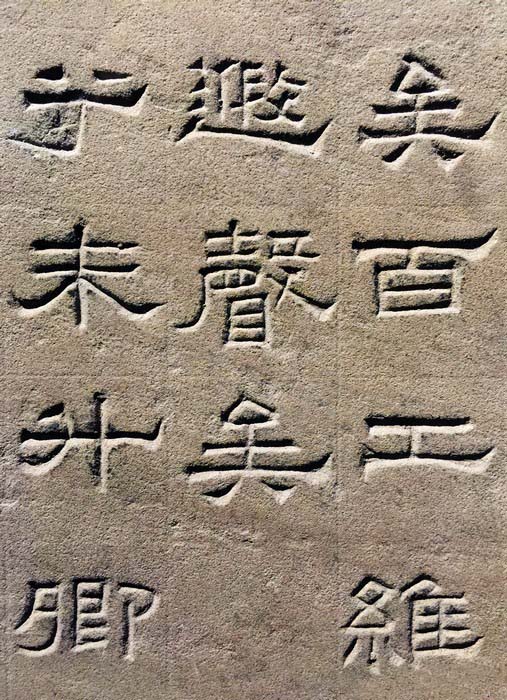 矣百工維
遐聲矣
于未升卿